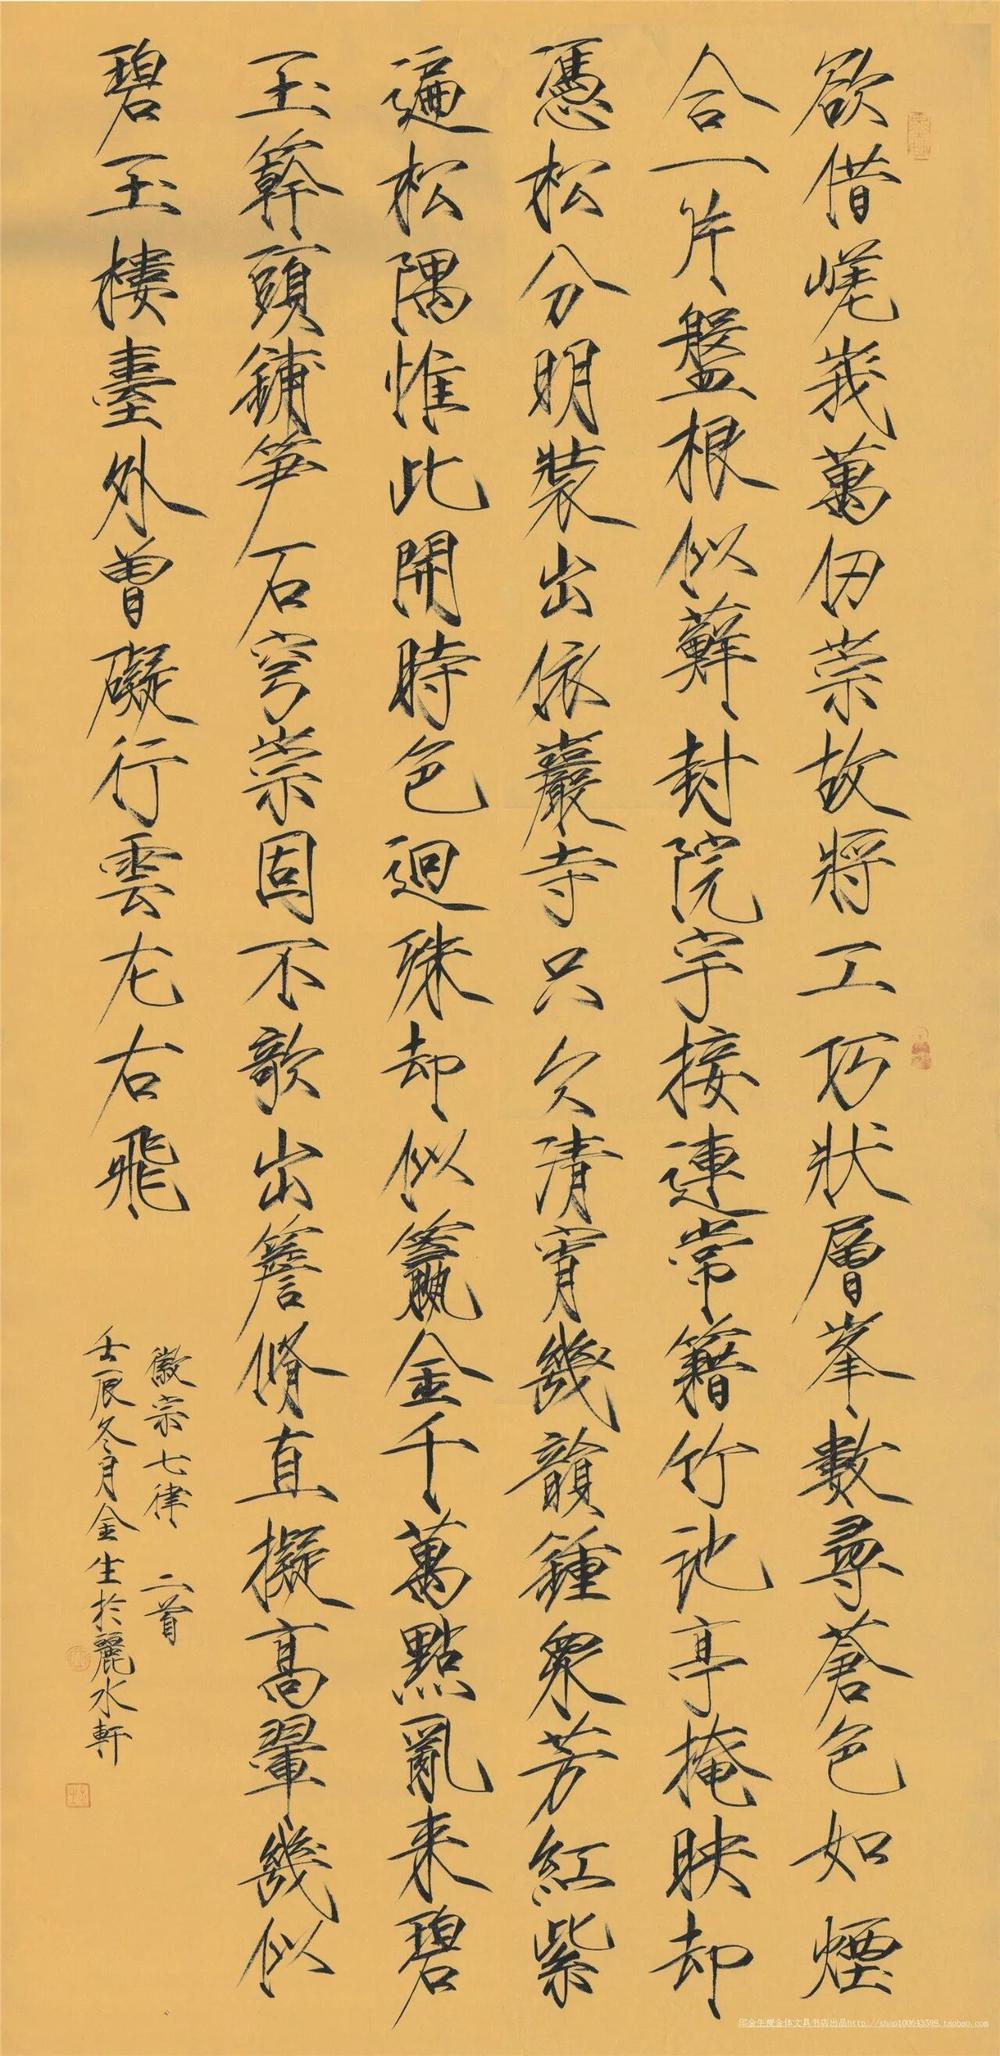 欲借嵯峨萬仞崇故將工巧狀層峯數尋蒼色如煙
合一片盤根似蘚封院宇接連常籍竹池亭掩映却
憑松分明裝出依巖寺只欠清宵幾韻鍾衆芳紅紫
遍松隅惟此開時色迥殊却似籯金千萬點亂来碧
玉簳頭鋪笋石穹崇固不欹出簷脩直擬高翬幾似
碧玉樓臺外曾礙行雲左右飛
徽宗七律 二首
壬辰冬月金生於麗水軒
邱金生瘦金体文具书店出品http://shop100643598.taobao.com